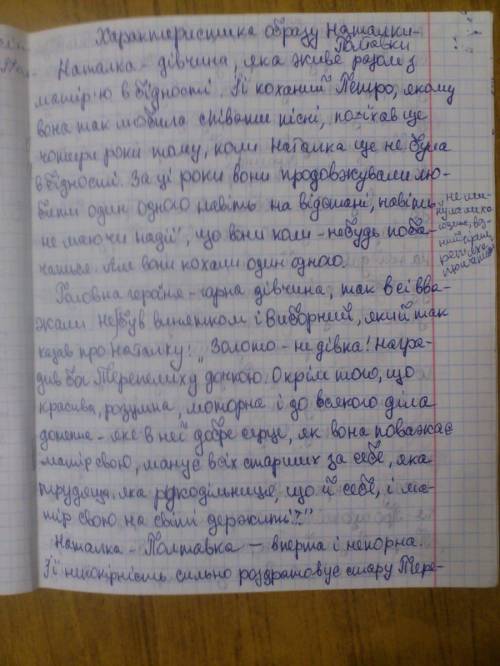 Характеристика образу Наталки-
Полтавки
Наталка - дівчина, яка живе разом з
матір'ю в бідності. Її коханий Петро, якому
вона так любила співати пісні, поїхав ще
чотири роки тому, коли Наталка ще не була
в бідності. За ці роки вони продовжували лю-
бити один одного навіть на відстані, навіть
не маючи надії, що вони коли-небудь поба-
чаться. Але вони кохали один одного.
Головна героїня - гарна дівчина, так всі вва-
жали. Не був винятком і Виборний, який так
казав про Наталку: „Золото - не дівка! Награ-
див бог Терпелиху дочкою. Окрім того, що
красива, розумна, моторна і до всякого діла
дотепна - яке в неї добре серце, як вона поважає
матір свою, шанує всіх старших за себе, яка
трудяща, яка рукодільниця, що й себе, і ма-
тір свою на світі держить!"
Наталка - Полтавка — вперта і непокірна.
Її непокірність сильно роздратовує стару Тере-